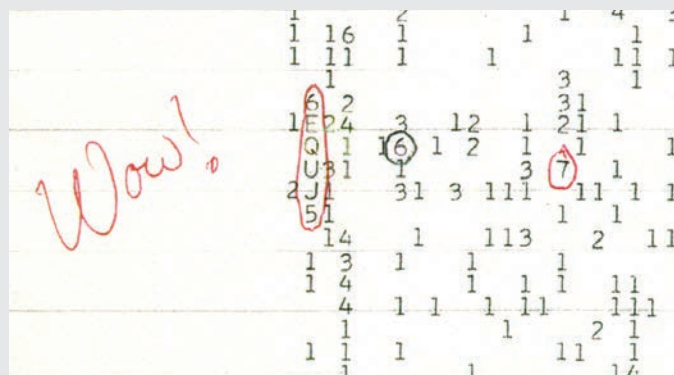 1 2 1 4
1 16 1 1 1
1 11 1 1 11 1
1 3 1
6 2 31
1 E 24 3 12 1 21 1
Q 1 1 6 1 2 1 1 1
U 31 1 3 7 1
Wow!
2 J 1 31 3 111 11 1 1
5 1 1 1
14 1 113 2 11
1 3 1 1 1
1 4 1 1 1 11
4 1 1 1 11 111
1 1 2 1
1 1 1 11 1
1 1 14